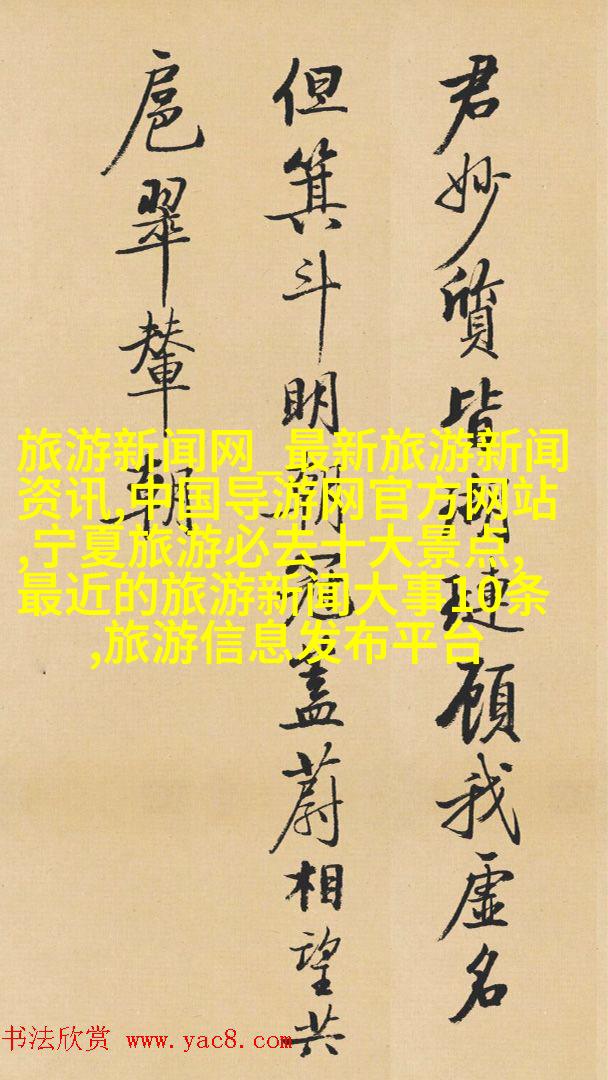 君妙質皆瑚璉顧我虛名
但箕斗明朝冠蓋蔚相望共
扈翠輦朝
旅游新闻网_最新旅游新闻
资讯,中国导游网官方网站
,宁夏旅游必去十大景点,
最近的旅游新闻大事10条
,旅游信息发布平台
书法欣赏 www.yac8.com